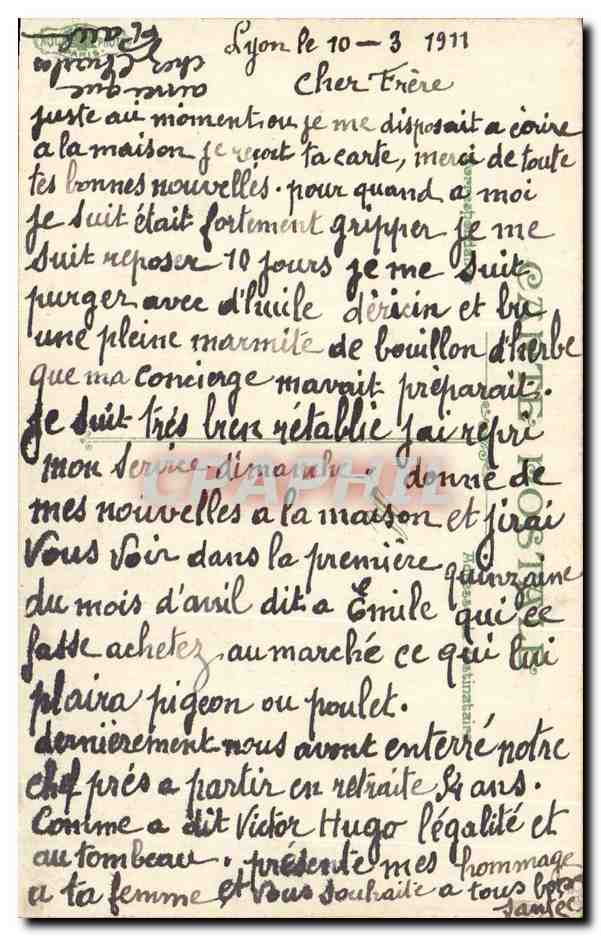 Lyon le 10 - 3 1911
Cher Frère
juste au moment ou je me disposait a ècrire
a la maison je reçoit ta carte, merci de toute
tes bonnes nouvelles. pour quand a moi
je suit était fortement gripper je me
suit reposer 10 jours je me suit
purger avec d'huile déricin et bu
une pleine marmite de bouillon d'herbe
que ma concierge mavait prèparait.
je suit trés bien rétablie j'ai repri
mon service dimanche. donne de
mes nouvelles a la maison et j'irai
vous voir dans la première quinzaine
du mois d'avril dit a Emile qui ce
fasse achetez au marché ce qui lui
plaira pigeon ou poulet.
dernièrement nous avont enterré notre
chef prés a partir en retraite 54 ans.
Comme a dit Victor Hugo l'égalité et
au tombeau. présente mes hommage
a ta femme et vous souhaite a tous bonne
santée
CARTE POSTALE
Correspondance
CRAPHIL
PARIS